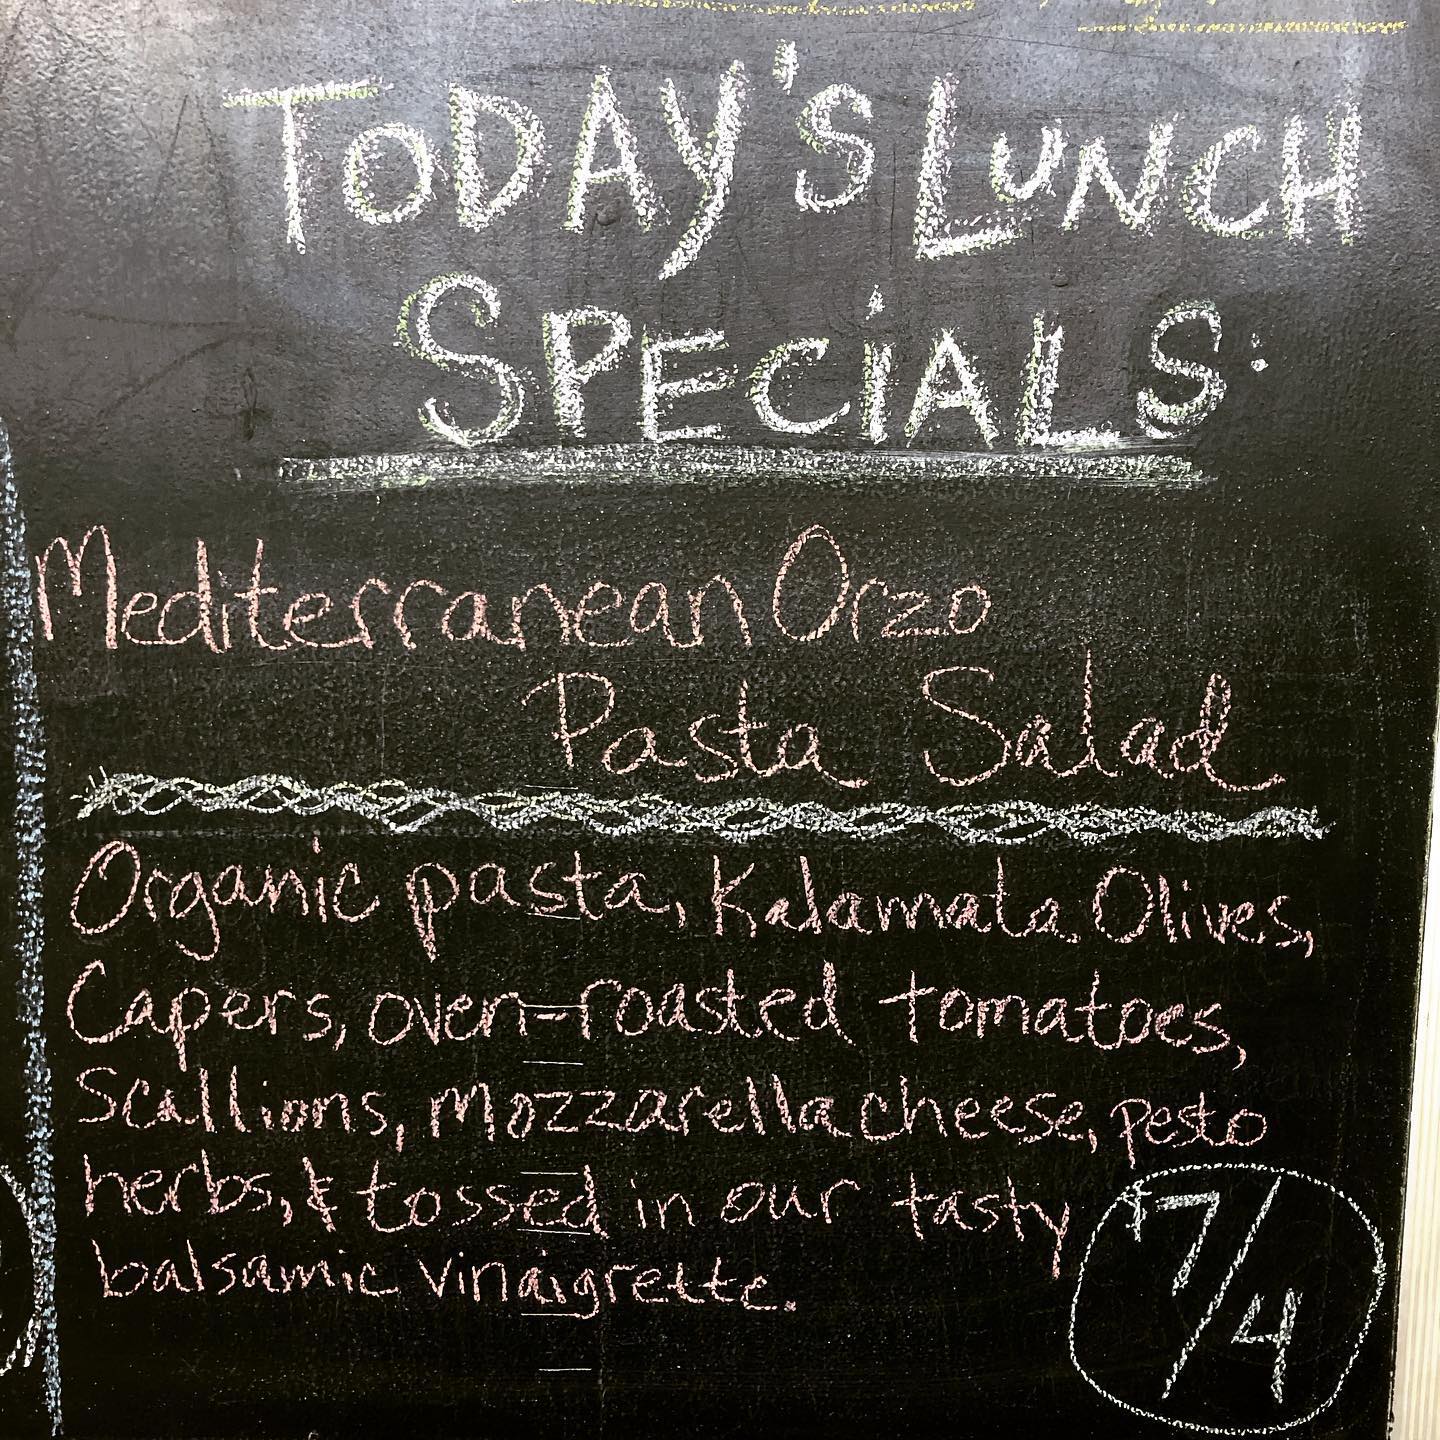 ToDAy's LuNCH
SPECiALS:
Mediterranean Orzo
Pasta Salad
Organic pasta, Kalamata Olives,
Capers, oven-roasted tomatoes,
Scallions, Mozzarella cheese, pesto
herbs, & tossed in our tasty
balsamic vinaigrette.
$7/4